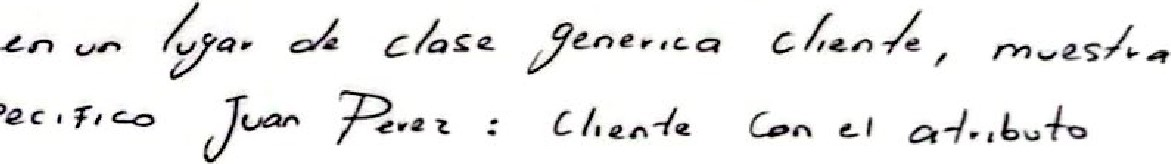 en un lugar de clase generica cliente, muestra
pecifico Juan Perez : Cliente con el atributo